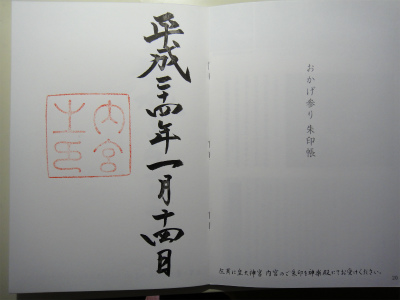 おかげ参り 朱印帳
左頁に皇大神宮 内宮のご朱印を神楽殿にてお受けください。
平成二十四年一月十四日
内宮
之印